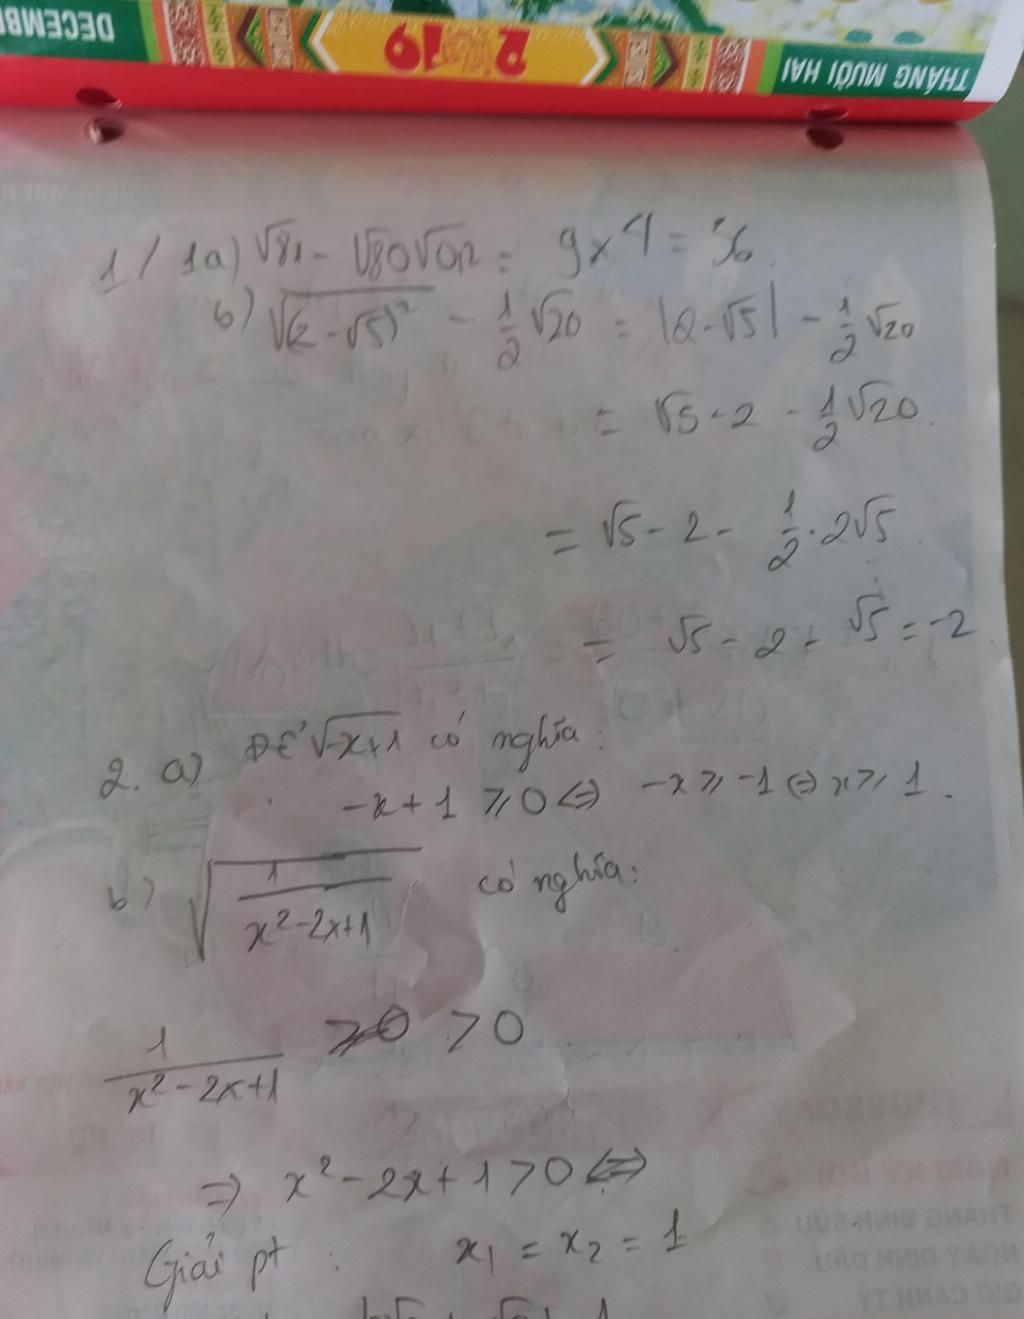 DECEMBER
2019
THÁNG MƯỜI HAI
1/ 1a) √81 - √80√0,2 = 9 x 4 = 36.
b) √(2 - √5)² - 1/2 √20 = |2 - √5| - 1/2 √20
= √5 - 2 - 1/2 √20.
= √5 - 2 - 1/2 · 2√5.
= √5 - 2 - √5 = -2
2. a) Để √-x+1 có nghĩa:
-x + 1 ⩾ 0 ⇔ -x ⩾ -1 ⇔ x ⩾ 1.
b) √(1/(x² - 2x + 1)) có nghĩa:
1/(x² - 2x + 1) > 0
⇒ x² - 2x + 1 > 0 ⇔
Giải pt : x₁ = x₂ = 1